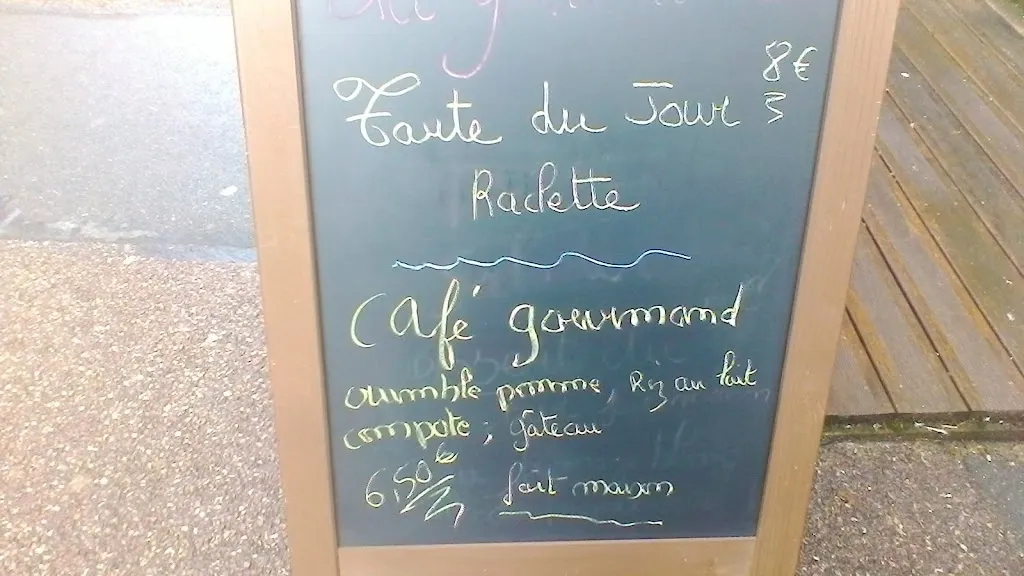 8€
Tarte du Jour
Raclette
Café gourmand
crumble pomme, Riz au lait
compote, gâteau
6,50 €
fait maison